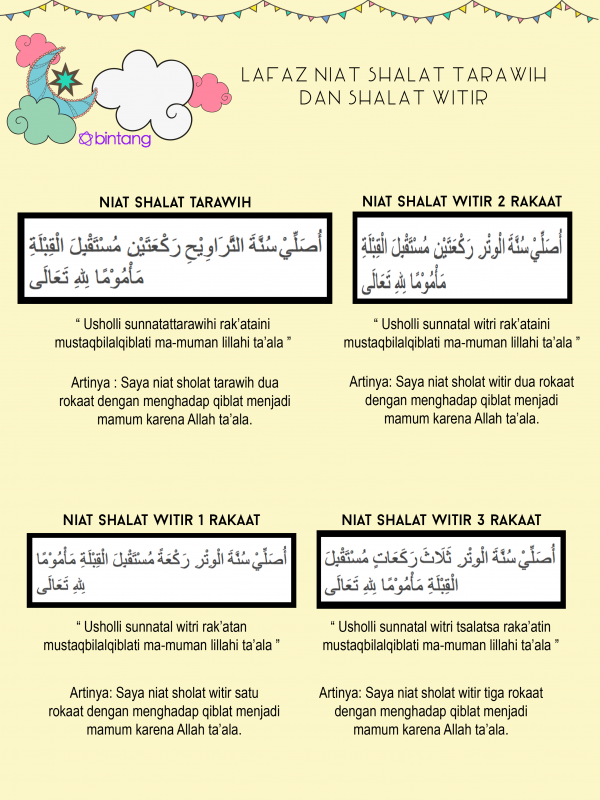 LAFAZ NIAT SHALAT TARAWIH
DAN SHALAT WITIR
bintang
NIAT SHALAT TARAWIH
أُصَلِّيْ سُنَّةَ التَّرَاوِيْحِ رَكْعَتَيْنِ مُسْتَقْبِلَ الْقِبْلَةِ
مَأْمُوْمًا لِلهِ تَعَالَى
“ Usholli sunnatattarawihi rak’ataini
mustaqbilalqiblati ma-muman lillahi ta’ala ”
Artinya : Saya niat sholat tarawih dua
rokaat dengan menghadap qiblat menjadi
mamum karena Allah ta’ala.
NIAT SHALAT WITIR 2 RAKAAT
أُصَلِّيْ سُنَّةَ الْوِتْرِ رَكْعَتَيْنِ مُسْتَقْبِلَ الْقِبْلَةِ
مَأْمُوْمًا لِلهِ تَعَالَى
“ Usholli sunnatal witri rak’ataini
mustaqbilalqiblati ma-muman lillahi ta’ala ”
Artinya: Saya niat sholat witir dua rokaat
dengan menghadap qiblat menjadi
mamum karena Allah ta’ala.
NIAT SHALAT WITIR 1 RAKAAT
أُصَلِّيْ سُنَّةَ الْوِتْرِ رَكْعَةً مُسْتَقْبِلَ الْقِبْلَةِ مَأْمُوْمًا
لِلهِ تَعَالَى
“ Usholli sunnatal witri rak’atan
mustaqbilalqiblati ma-muman lillahi ta’ala ”
Artinya: Saya niat sholat witir satu
rokaat dengan menghadap qiblat menjadi
mamum karena Allah ta’ala.
NIAT SHALAT WITIR 3 RAKAAT
أُصَلِّيْ سُنَّةَ الْوِتْرِ ثَلَاثَ رَكَعَاتٍ مُسْتَقْبِلَ
الْقِبْلَةِ مَأْمُوْمًا لِلهِ تَعَالَى
“ Usholli sunnatal witri tsalatsa raka’atin
mustaqbilalqiblati ma-muman lillahi ta’ala ”
Artinya: Saya niat sholat witir tiga rokaat
dengan menghadap qiblat menjadi
mamum karena Allah ta’ala.